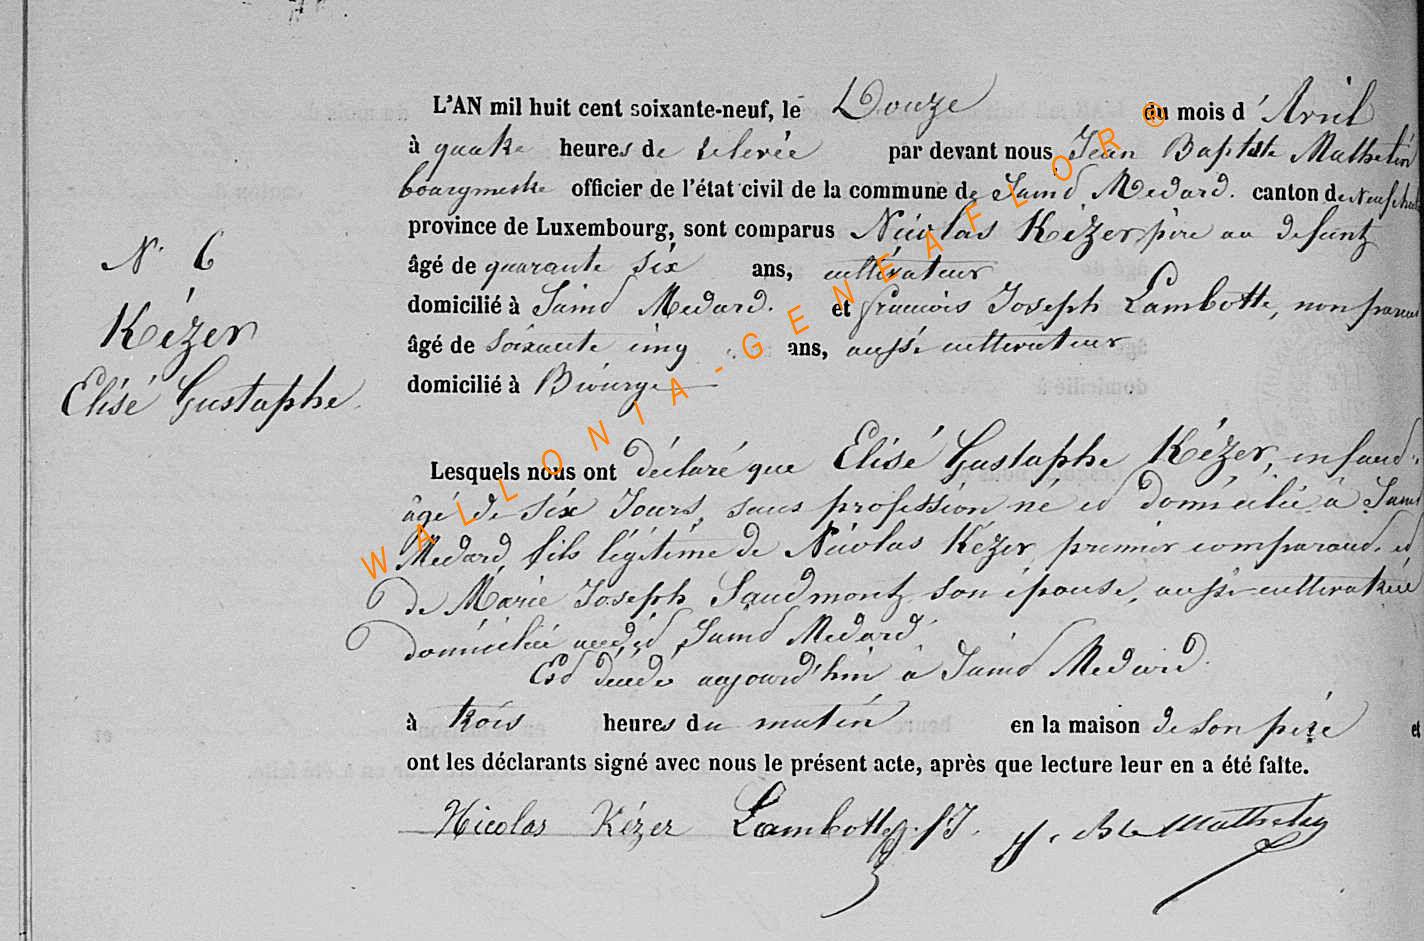 L'AN mil huit cent soixante-neuf, le Douze du mois d'Avril
à quatre heures de relevée par devant nous Jean Baptiste Mathelin
bourgmestre officier de l'état civil de la commune de Saind Medard. canton de Neufchat
province de Luxembourg, sont comparus Nicolas Kézer père au defunt
N. 6
âgé de quarante six ans, cultivateur
domicilié à Saind Medard. et francois Joseph Lambotte, non parent
Kézer
âgé de soixante cinq ans, aussi cultivateur
domicilié à Biourge
Elisé Gustaphe.
Lesquels nous ont déclaré que Elisé Gustaphe Kézer, enfand
âgé de six Jours, sans profession né ed domicilié à Saind
Medard, fils légitime de Nicolas Kézer, premier comparand, ed
de Marie Joseph Saudmont son épouse, aussi cultivatrice
domiciliée audid Saind Medard
Esd décédé aujourd'hui à Saind Medard.
à trois heures du matin en la maison de son père et
ont les déclarants signé avec nous le présent acte, après que lecture leur en a été faite.
Nicolas Kézer Lambotte fJ. J. Bte Mathelin
WALLONIA-GENEAFLOR®